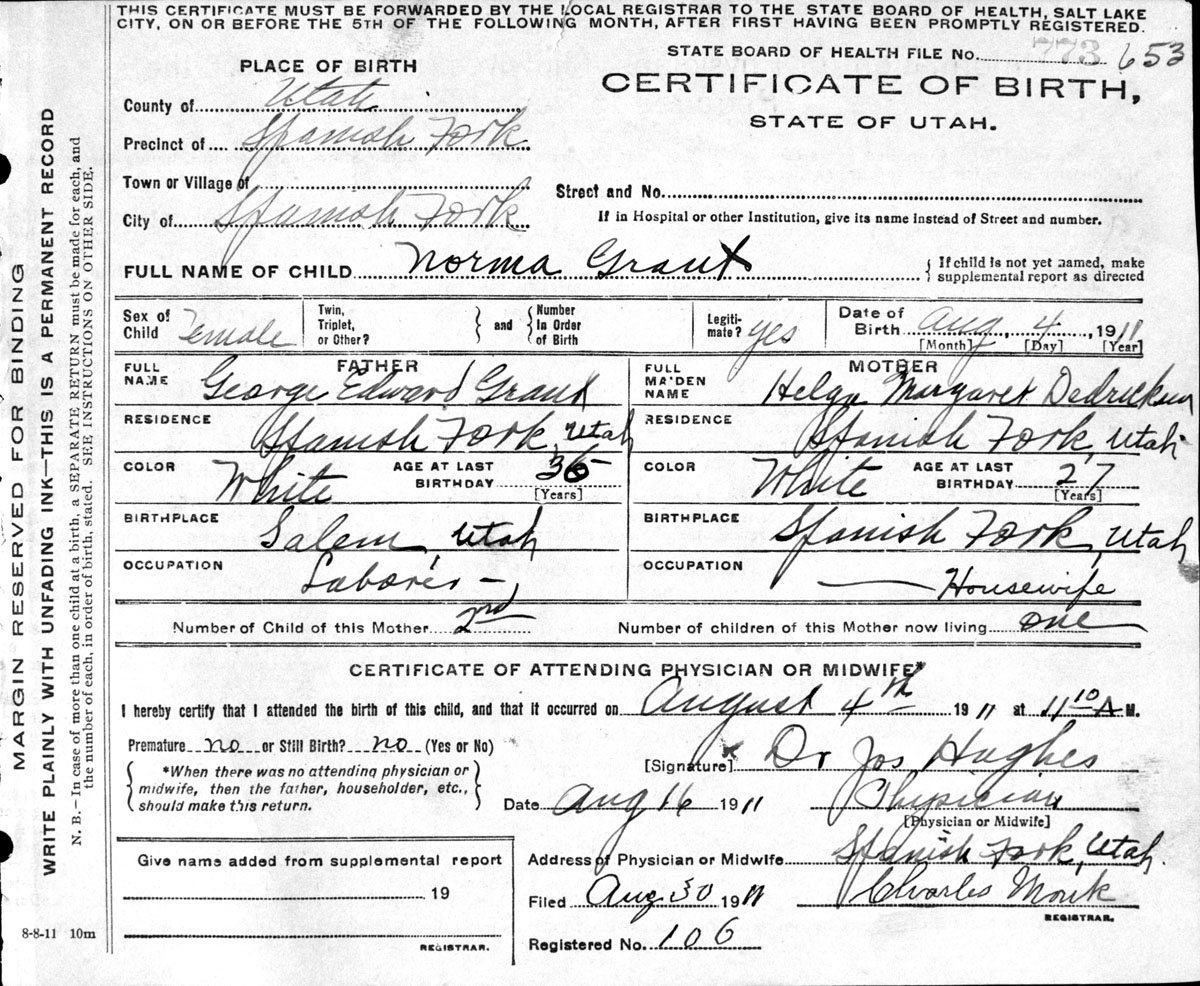 THIS CERTIFICATE MUST BE FORWARDED BY THE LOCAL REGISTRAR TO THE STATE BOARD OF HEALTH, SALT LAKE
CITY, ON OR BEFORE THE 5TH OF THE FOLLOWING MONTH, AFTER FIRST HAVING BEEN PROMPTLY REGISTERED.
STATE BOARD OF HEALTH FILE No. 773 653
PLACE OF BIRTH
CERTIFICATE OF BIRTH,
STATE OF UTAH.
County of Utah
Precinct of Spanish Fork
Town or Village of
Street and No.
City of Spanish Fork
If in Hospital or other Institution, give its name instead of Street and number.
FULL NAME OF CHILD Norma Grant
{ If child is not yet named, make
supplemental report as directed
Sex of Child Female
Twin, Triplet, or Other? } and { Number In Order of Birth
Legitimate? yes
Date of Birth Aug 4, 1911
[Month] [Day] [Year]
FATHER
FULL NAME George Edward Grant
RESIDENCE Spanish Fork, Utah
COLOR White AGE AT LAST BIRTHDAY 36
[Years]
BIRTHPLACE Salem, Utah
OCCUPATION Laborer -
MOTHER
FULL MAIDEN NAME Helga Margaret Dedrickson
RESIDENCE Spanish Fork, Utah
COLOR White AGE AT LAST BIRTHDAY 27
[Years]
BIRTHPLACE Spanish Fork, Utah
OCCUPATION Housewife
Number of Child of this Mother 2nd Number of children of this Mother now living one
CERTIFICATE OF ATTENDING PHYSICIAN OR MIDWIFE*
I hereby certify that I attended the birth of this child, and that it occurred on August 4th 1911 at 11 10 A M.
Premature no or Still Birth? no (Yes or No)
[Signature] Dr Jos Hughes
{ *When there was no attending physician or
midwife, then the father, householder, etc.,
should make this return. }
Date Aug 16 1911 Physician
[Physician or Midwife]
Give name added from supplemental report
19
REGISTRAR.
Address of Physician or Midwife Spanish Fork, Utah.
Filed Aug 30 1911 Charles Monk
REGISTRAR.
Registered No. 106
8-8-11 10m
MARGIN RESERVED FOR BINDING
WRITE PLAINLY WITH UNFADING INK—THIS IS A PERMANENT RECORD
N. B.—In case of more than one child at a birth, a SEPARATE RETURN must be made for each, and
the number of each, in order of birth, stated. SEE INSTRUCTIONS ON OTHER SIDE.